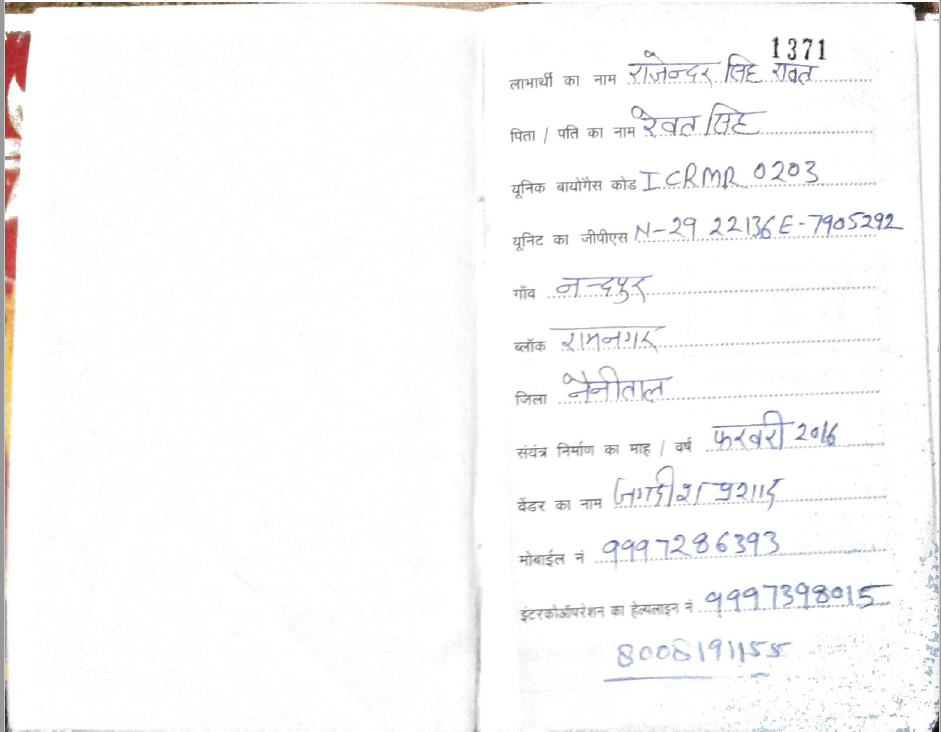 1371
लाभार्थी का नाम राजेन्दर सिंह रावत
पिता / पति का नाम रेवत सिंह
यूनिक बायोगैस कोड ICRMR 0203
यूनिट का जीपीएस N-29 22136 E-7905292
गाँव नन्दपुर
ब्लॉक रामनगर
जिला नैनीताल
संयंत्र निर्माण का माह / वर्ष फरवरी 2016
वेंडर का नाम जगदीश प्रशाद
मोबाईल नं 9997286393
इंटरकोऑपरेशन का हेल्पलाइन नं 9997398015
8008191155